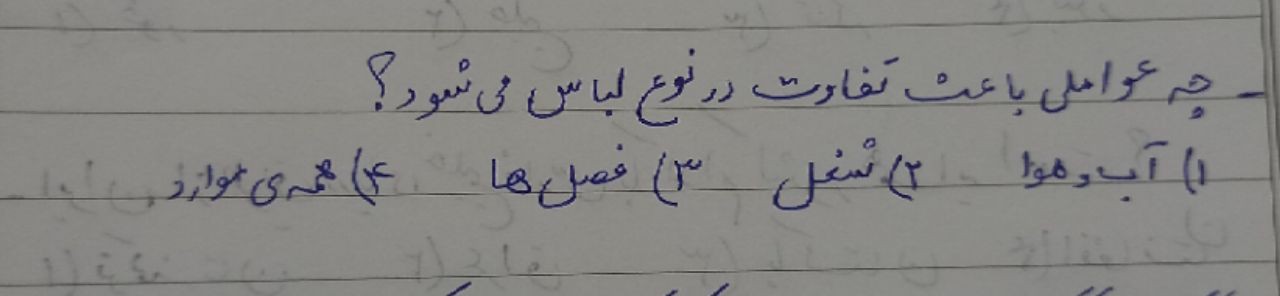 - چه عواملی باعث تفاوت در نوع لباس می شود؟
۱) آب و هوا ۲) شغل ۳) فصل ها ۴) همه ی موارد